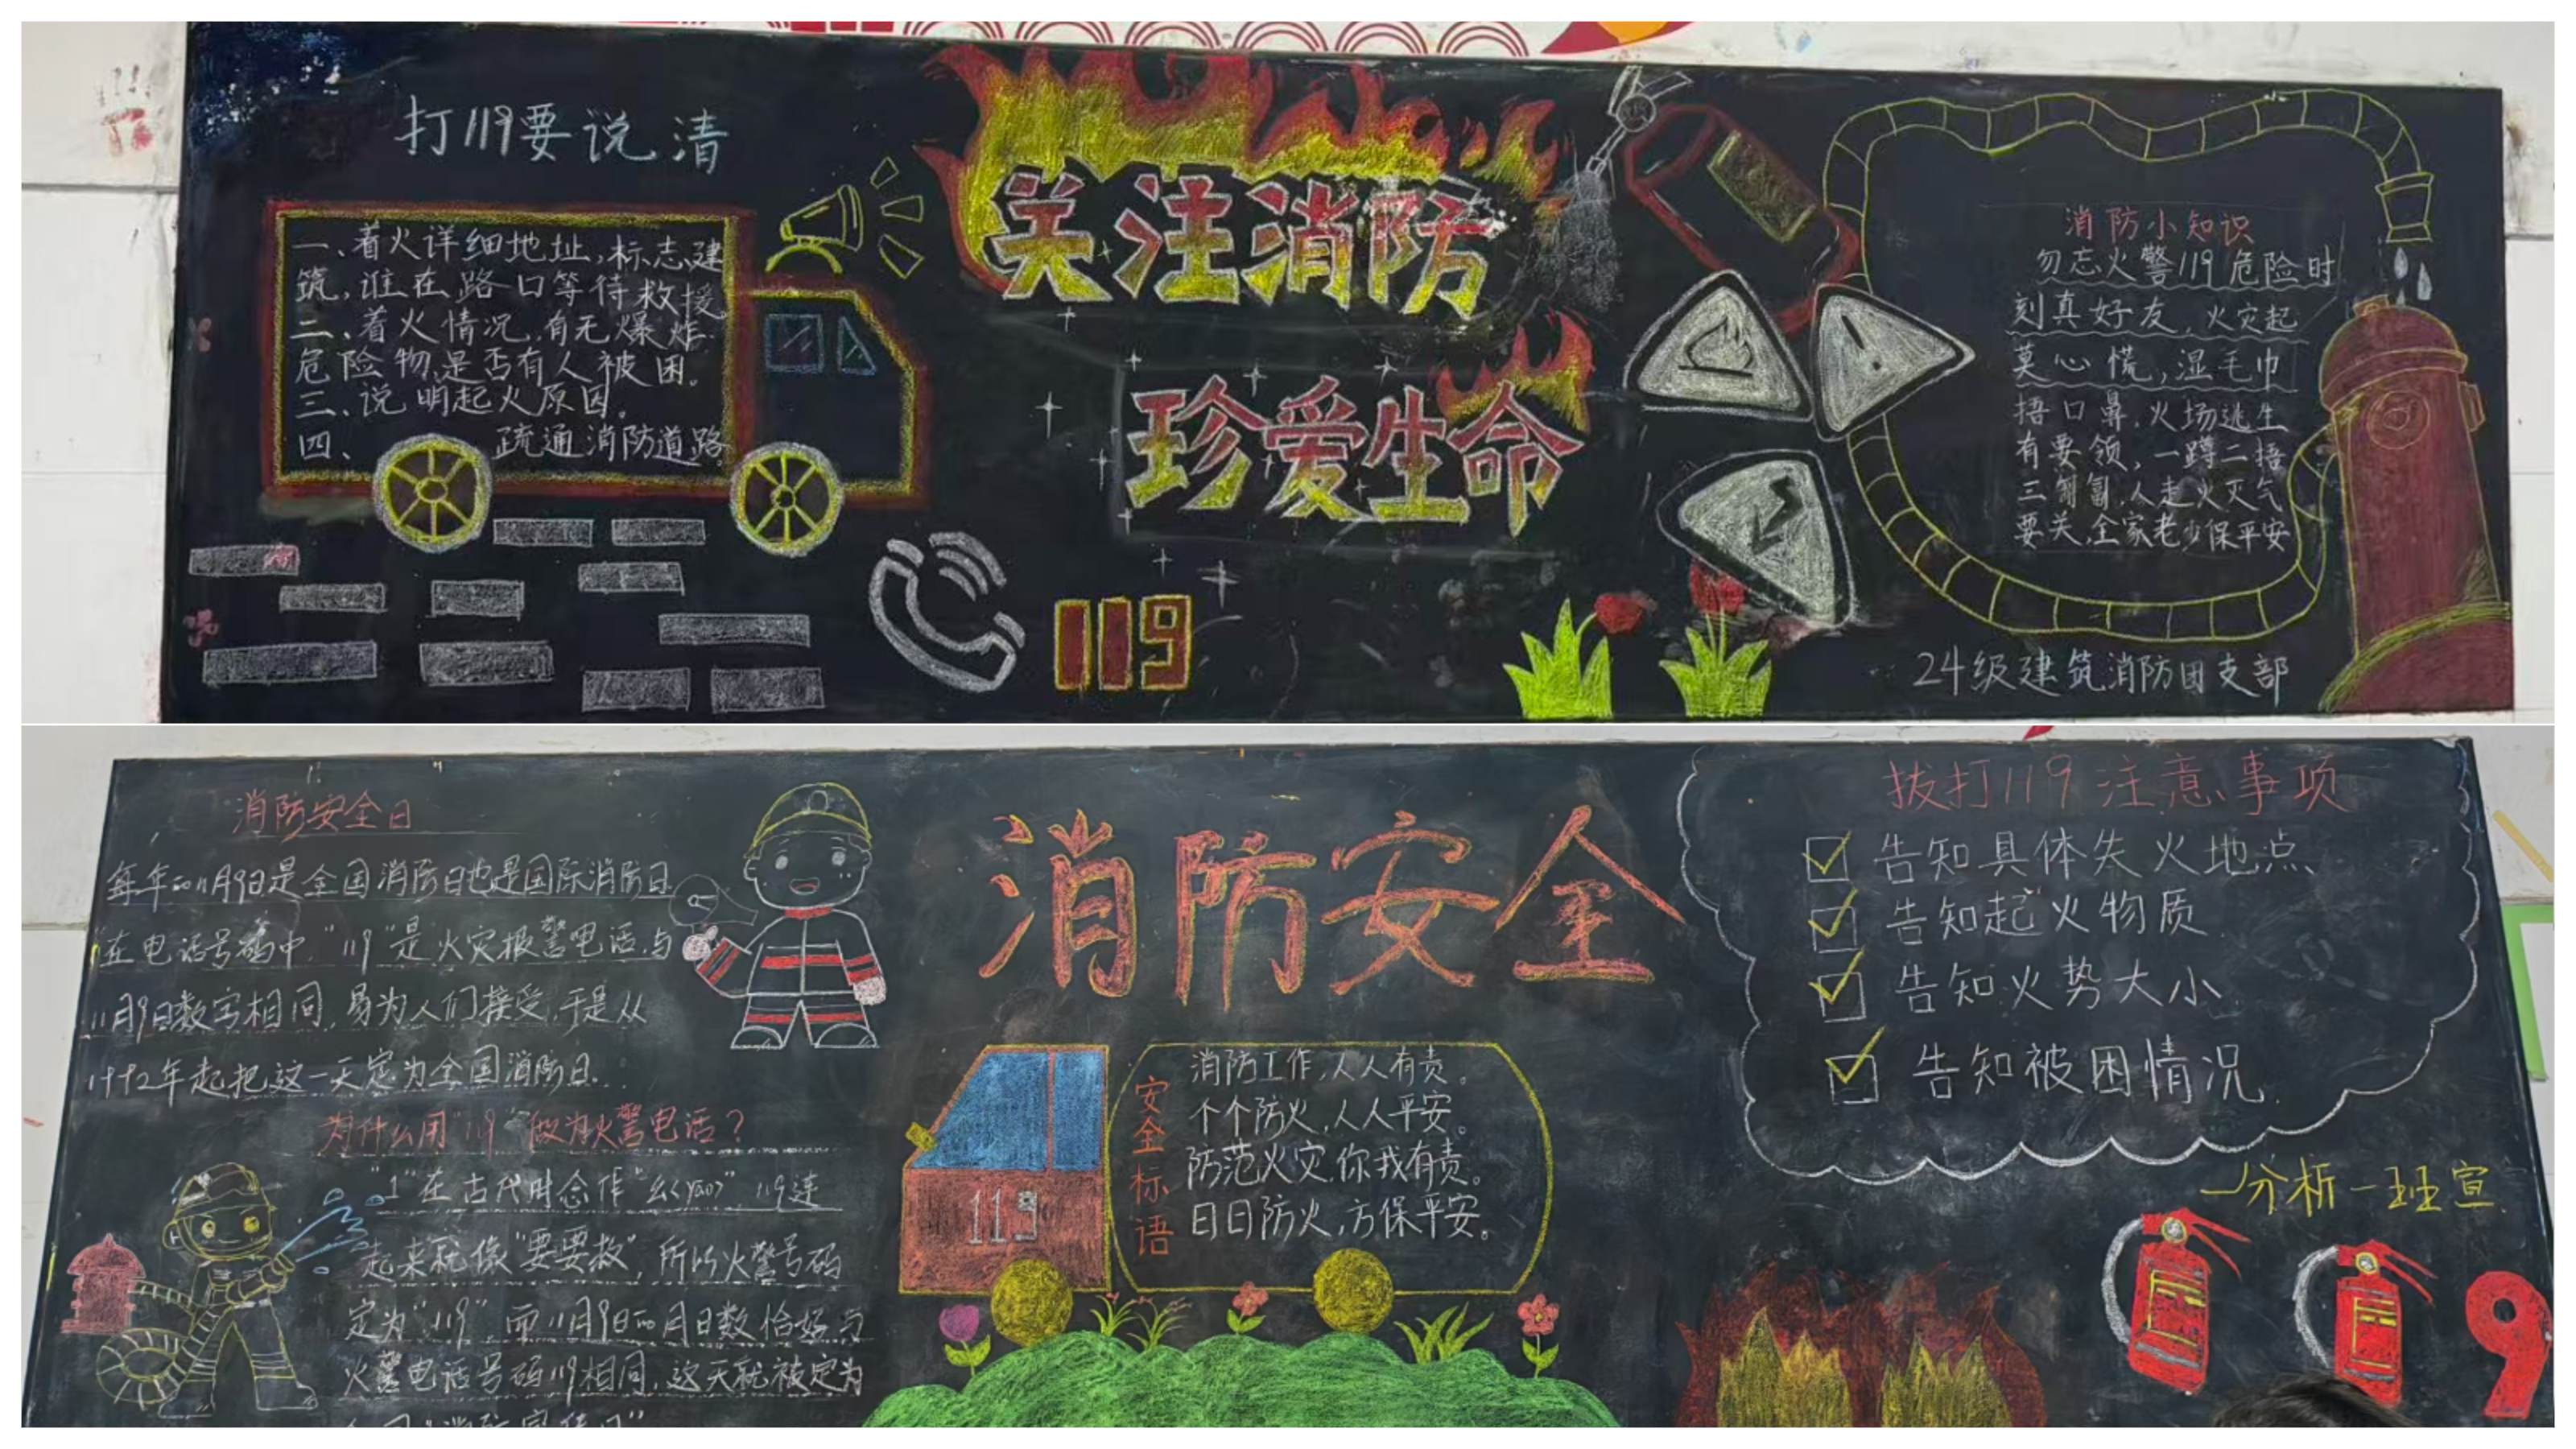 打119要说清
一、着火详细地址,标志建
筑,谁在路口等待救援
二、着火情况,有无爆炸
危险物,是否有人被困。
三、说明起火原因。
四、疏通消防道路
关注消防
珍爱生命
119
消防小知识
勿忘火警119危险时
刻真好友,火灾起
莫心慌,湿毛巾
捂口鼻,火场逃生
有要领,一蹲二捂
三匍匐,人走火灭气
要关,全家老少保平安
24级建筑消防团支部
消防安全日
每年的11月9日是全国消防日也是国际消防日
在电话号码中,"119"是火灾报警电话,与
11月9日数字相同,易为人们接受,于是从
1992年起把这一天定为全国消防日.
为什么用"119"做为火警电话?
"1"在古代时念作"幺<yao>"119连
起来就像"要要救",所以火警号码
定为"119",而11月9日的月日数恰好与
火警电话号码119相同,这天就被定为
消防安全
119
安全标语
消防工作,人人有责。
个个防火,人人平安。
防范火灾,你我有责。
日日防火,方保平安。
拔打119注意事项
告知具体失火地点
告知起火物质
告知火势大小
告知被困情况
一分析一班宣
9